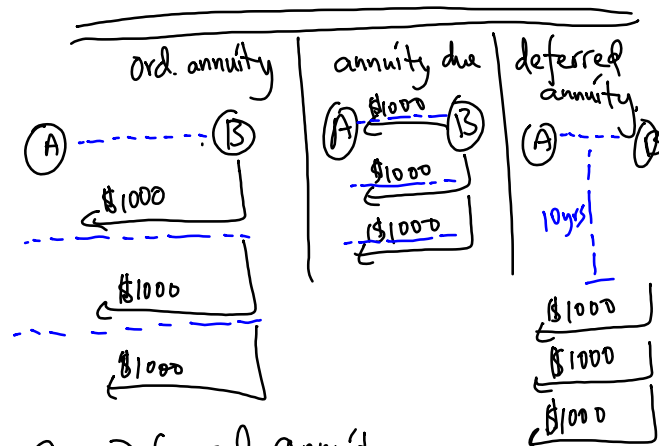 ord. annuity
A
B
$1000
$1000
$1000
annuity due
$1000
A
B
$1000
$1000
deferred
annuity.
A
B
10yrs
$1000
$1000
$1000
Deferred annuit